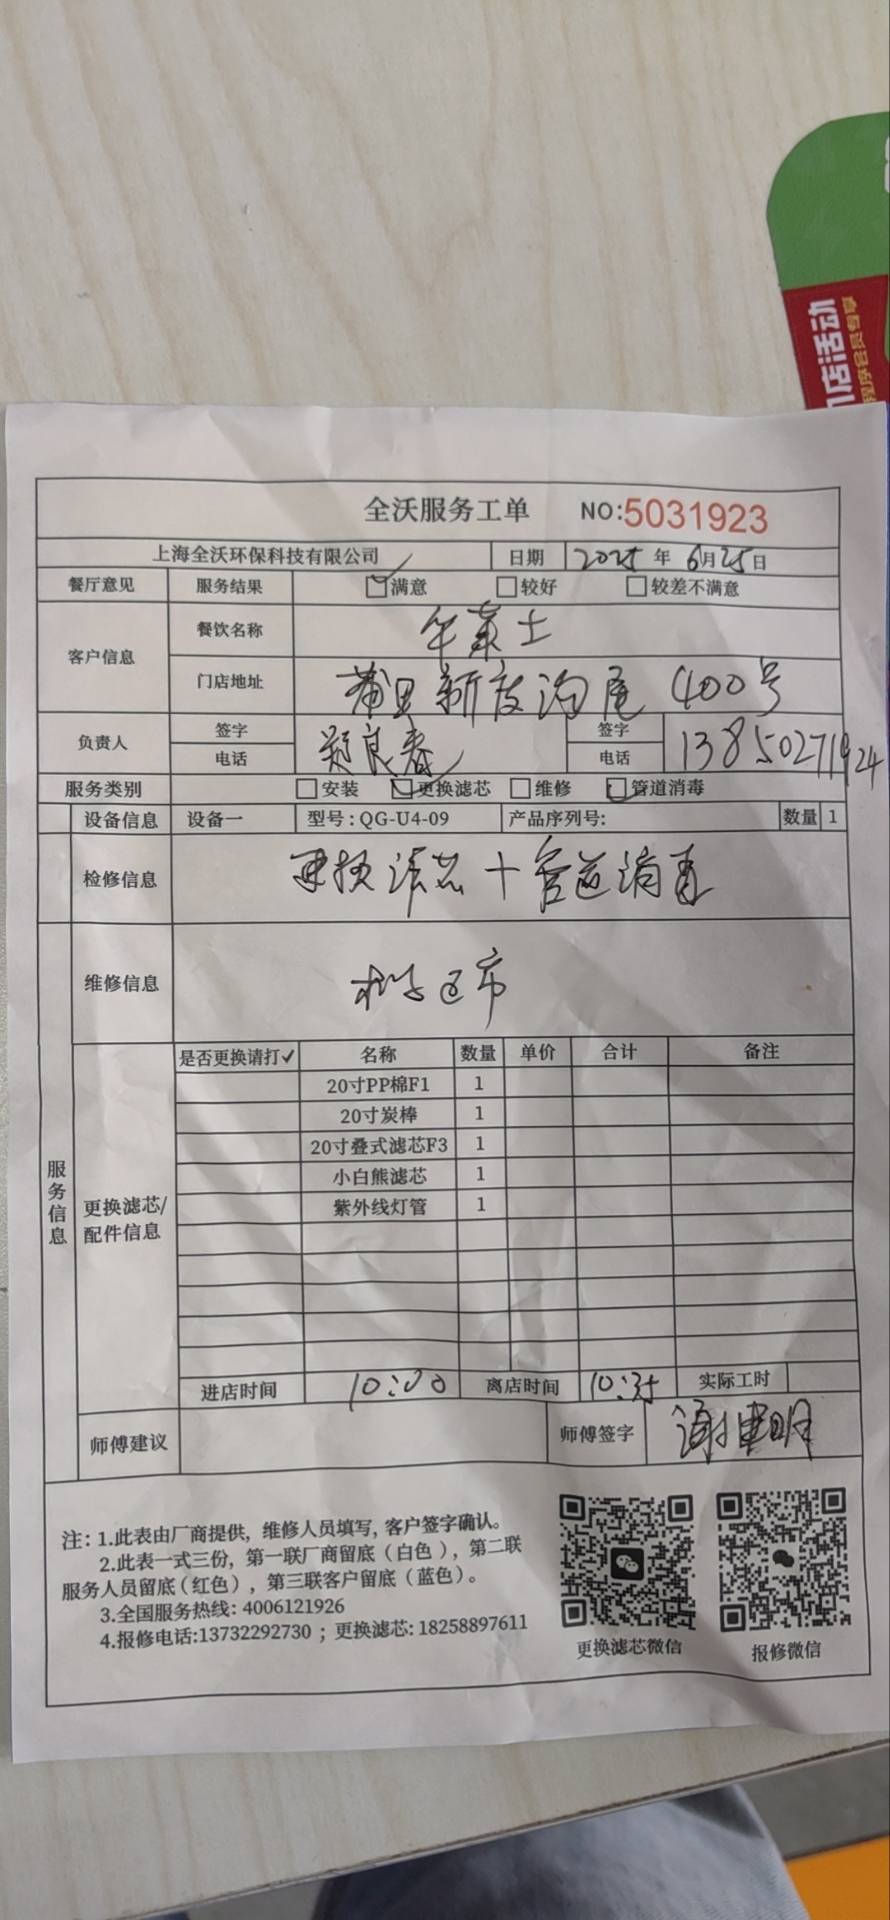 门店活动
程序会员专享
全沃服务工单 NO:5031923
上海全沃环保科技有限公司 日期 2025 年 6月25日
餐厅意见 服务结果 满意 较好 较差不满意
客户信息 餐饮名称 华莱士
门店地址 莆田新度沟尾400号
负责人 签字 郑良春 签字
电话 电话 13850271924
服务类别 安装 更换滤芯 维修 管道消毒
设备信息 设备一 型号:QG-U4-09 产品序列号: 数量 1
检修信息 更换滤芯+管道消毒
维修信息
服务信息
更换滤芯/配件信息
是否更换请打✓ 名称 数量 单价 合计 备注
20寸PP棉F1 1
20寸炭棒 1
20寸叠式滤芯F3 1
小白熊滤芯 1
紫外线灯管 1
进店时间 10:00 离店时间 10:35 实际工时
师傅建议 师傅签字 谢建明
注: 1.此表由厂商提供, 维修人员填写, 客户签字确认。
2.此表一式三份, 第一联厂商留底(白色), 第二联
服务人员留底(红色), 第三联客户留底(蓝色)。
3.全国服务热线: 4006121926
4.报修电话:13732292730 ; 更换滤芯: 18258897611
更换滤芯微信 报修微信